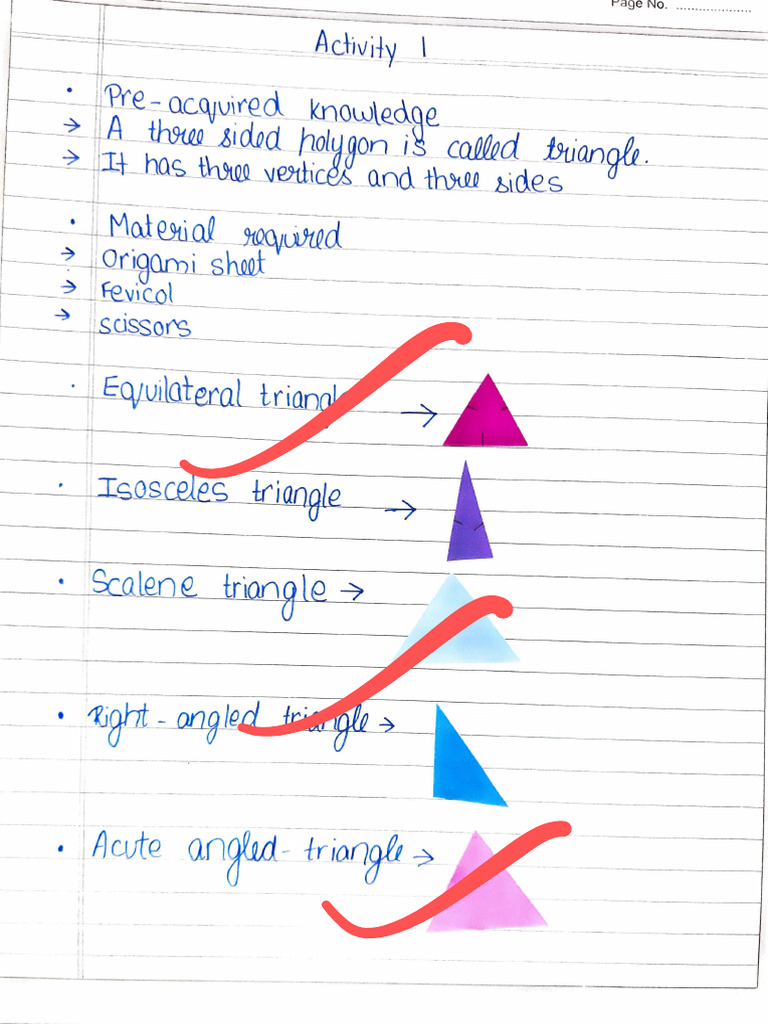 Page No. ....................
Activity 1
• Pre-acquired knowledge
→ A three sided polygon is called triangle.
→ It has three vertices and three sides
• Material required
→ Origami sheet
→ Fevicol
→ scissors
• Equilateral triangle →
• Isosceles triangle →
• Scalene triangle →
• Right-angled triangle →
• Acute angled-triangle →